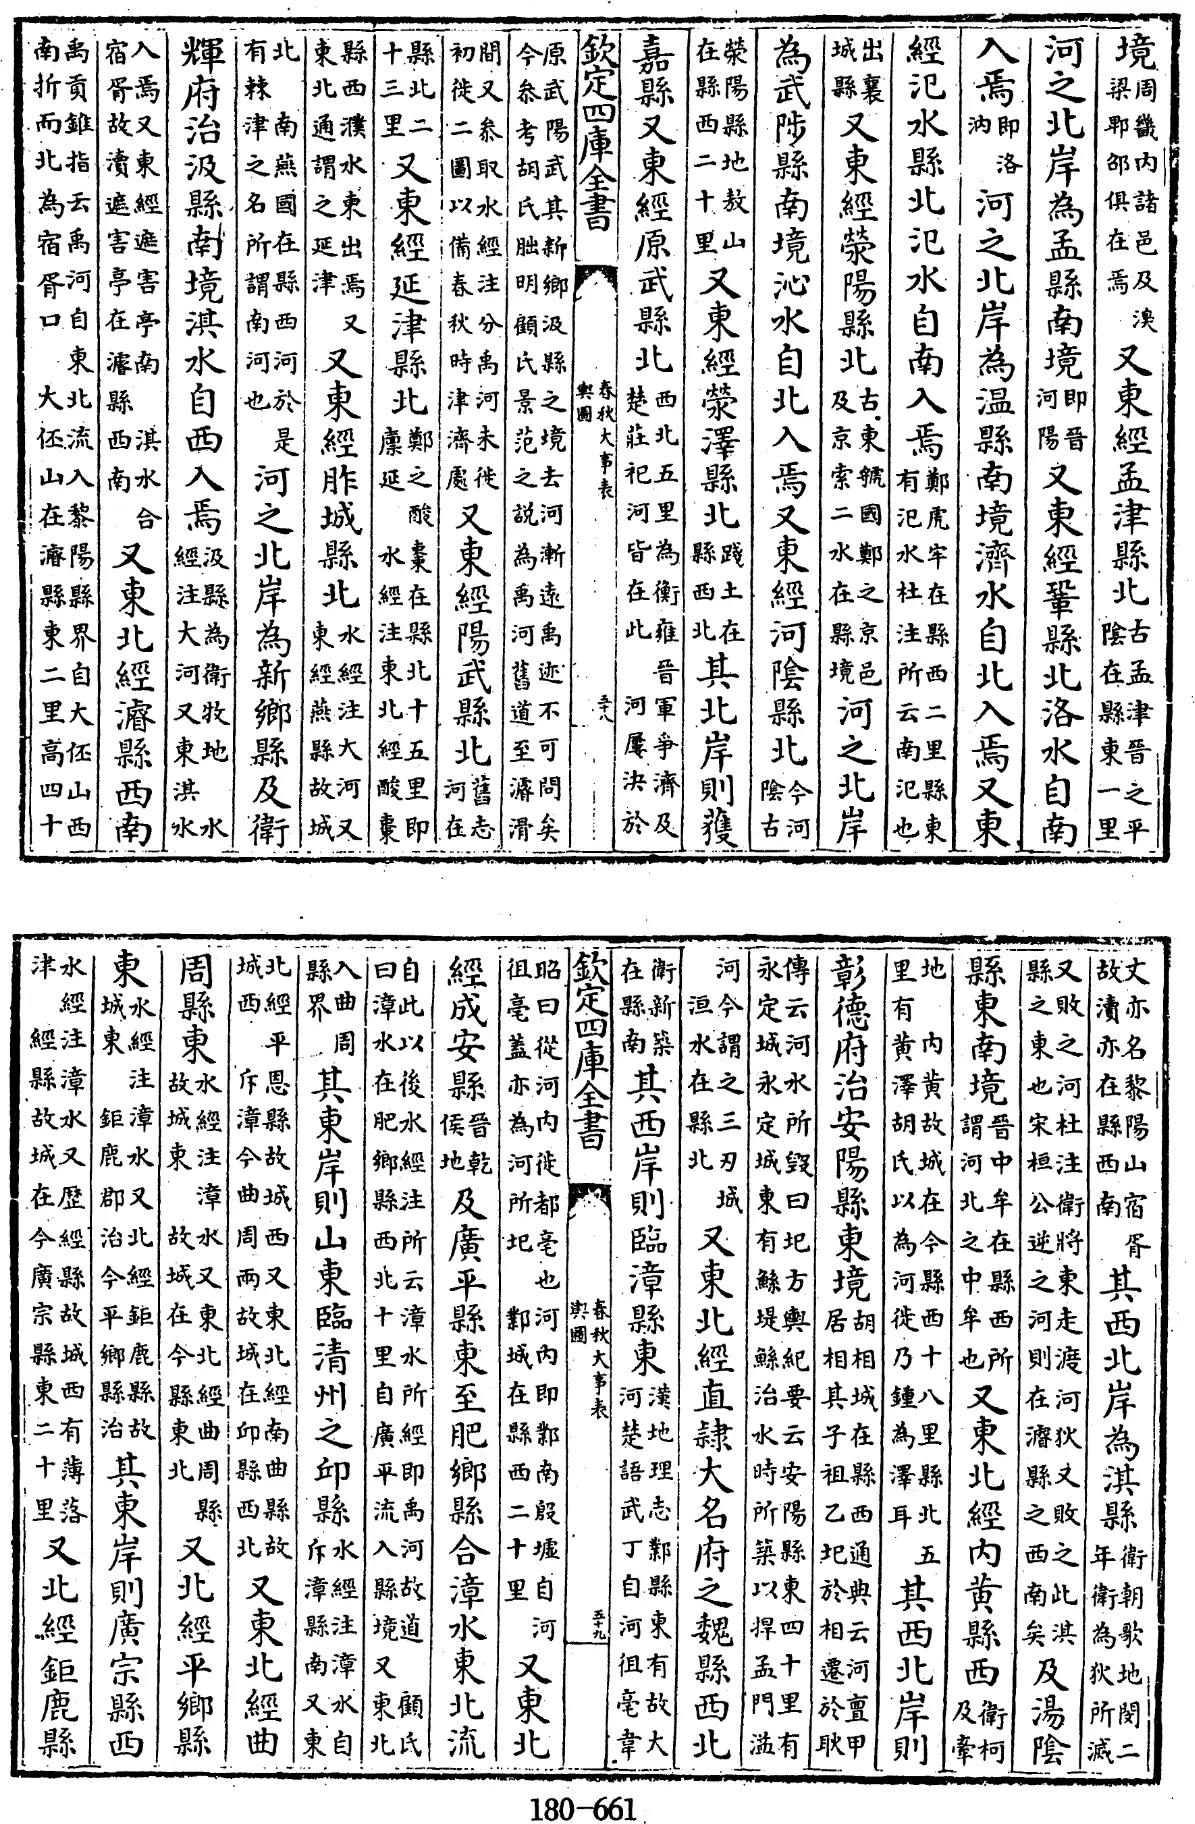 境周畿内諸邑及湨梁鄩邵俱在焉又東經孟津縣北古孟津晉之平陰在縣東一里
河之北岸為孟縣南境即晉河陽又東經鞏縣北洛水自南
入焉即洛汭河之北岸為温縣南境濟水自北入焉又東
經氾水縣北氾水自南入焉鄭虎牢在縣西二里縣東有氾水杜注所云南氾也
出襄城縣又東經滎陽縣北古東虢國鄭之京邑及京索二水在縣境河之北岸
為武陟縣南境沁水自北入焉又東經河陰縣北今河陰古
滎陽縣地敖山在縣西二十里又東經滎澤縣北踐土在縣西北其北岸則獲
嘉縣又東經原武縣北西北五里為衡雍晉軍爭濟及楚莊祀河皆在此河屢決於
欽定四庫全書 春秋大事表輿圖 五十八
原武陽武其新鄉汲縣之境去河漸遠禹迹不可問矣今叅考胡氏朏明顧氏景范之説為禹河舊道至濬滑
間又叅取水經注分禹河未徙初徙二圖以備春秋時津濟處又東經陽武縣北舊志河在
縣北二十三里又東經延津縣北鄭之酸棗在縣北十五里即廩延水經注東北經酸棗
縣西濮水東出焉又東北通謂之延津又東經胙城縣北水經注大河又東經燕縣故城
北南燕國在縣西河於是有棘津之名所謂南河也河之北岸為新鄉縣及衛
輝府治汲縣南境淇水自西入焉汲縣為衛牧地水經注大河又東淇水
入焉又東經遮害亭南淇水合宿胥故瀆遮害亭在濬縣西南又東北經濬縣西南
禹貢錐指云禹河自東北流入黎陽縣界自大伾山西南折而北為宿胥口大伾山在濬縣東二里高四十
丈亦名黎陽山宿胥故瀆亦在縣西南其西北岸為淇縣衛朝歌地閔二年衛為狄所滅
又敗之河杜注衛將東走渡河狄又敗之此淇縣之東也宋桓公逆之河則在濬縣之西南矣及湯陰
縣東南境晉中牟在縣西所謂河北之中牟也又東北經内黄縣西衛柯及牽
地内黄故城在今縣西十八里縣北五里有黄澤胡氏以為河徙乃鍾為澤耳其西北岸則
彰德府治安陽縣東境胡相城在縣西通典云河亶甲居相其子祖乙圯於相遷於耿
傳云河水所毀曰圯方輿紀要云安陽縣東四十里有永定城永定城東有鯀堤鯀治水時所築以捍孟門溢
河今謂之三刃城洹水在縣北又東北經直隸大名府之魏縣西北
衛新築在縣南其西岸則臨漳縣東漢地理志鄴縣東有故大河楚語武丁自河徂亳韋
昭曰從河内徙都亳也河内即鄴南殷墟自河徂亳蓋亦為河所圯鄴城在縣西二十里又東北
經成安縣晉乾侯地及廣平縣東至肥鄉縣合漳水東北流
自此以後水經注所云漳水所經即禹河故道顧氏曰漳水在肥鄉縣西北十里自廣平流入縣境又東北
入曲周縣界其東岸則山東臨清州之邱縣水經注漳水自斥漳縣南又東
北經平恩縣故城西又東北經南曲縣故城西斥漳今曲周兩故城在邱縣西北又東北經曲
周縣東水經注漳水又東北經曲周縣故城東故城在今縣東北又北經平鄉縣
東水經注漳水又北經鉅鹿縣故城東鉅鹿郡治今平鄉縣治其東岸則廣宗縣西
欽定四庫全書 春秋大事表輿圖 五十九
水經注漳水又歷經縣故城西有薄落津經縣故城在今廣宗縣東二十里又北經鉅鹿縣
180-661